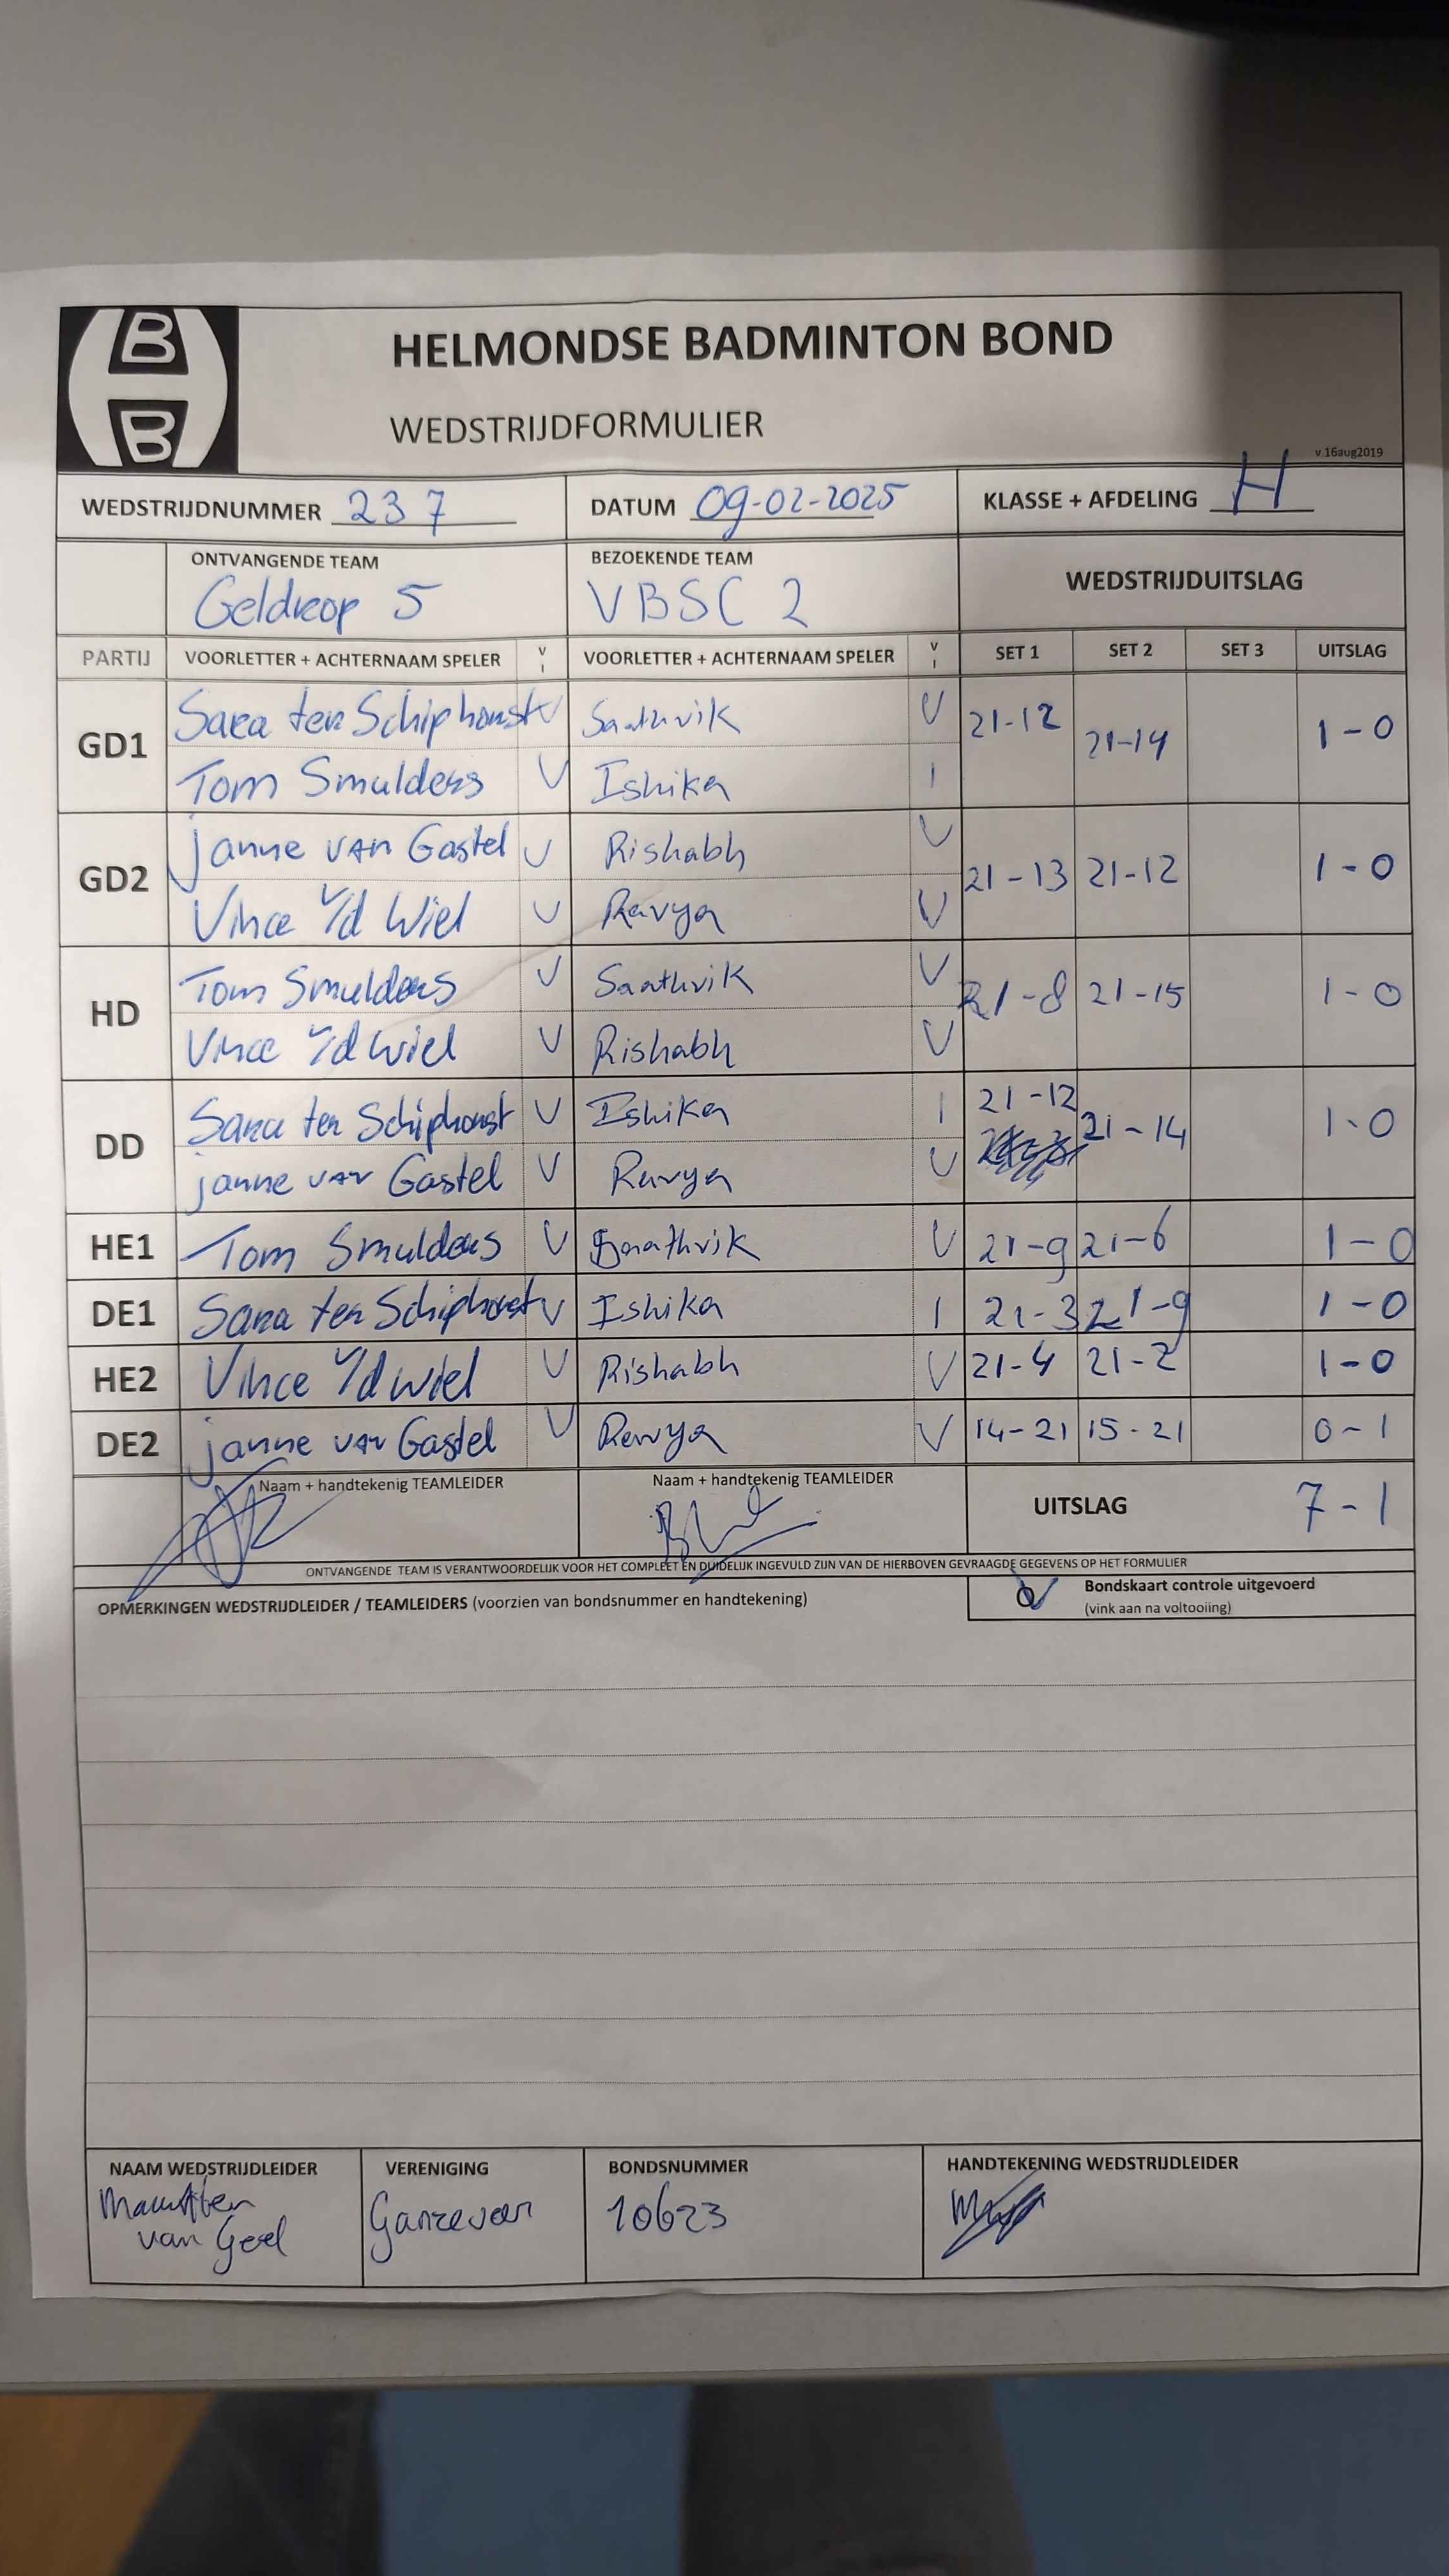 B
B
HELMONDSE BADMINTON BOND
WEDSTRIJDFORMULIER
v.16aug2019
WEDSTRIJDNUMMER 237 DATUM 09-02-2025 KLASSE + AFDELING H
ONTVANGENDE TEAM BEZOEKENDE TEAM WEDSTRIJDUITSLAG
Geldrop 5 VBSC 2
PARTIJ VOORLETTER + ACHTERNAAM SPELER V I VOORLETTER + ACHTERNAAM SPELER V I SET 1 SET 2 SET 3 UITSLAG
GD1 Sara ten Schiphorst V Saathvik V 21-12 21-14 1-0
Tom Smulders V Ishika I
GD2 Janne van Gastel V Rishabh V 21-13 21-12 1-0
Vince v/d Wiel V Ravya V
HD Tom Smulders V Saathvik V 21-8 21-15 1-0
Vince v/d Wiel V Rishabh V
DD Sara ten Schiphorst V Ishika I 21-12 21-14 1-0
Janne van Gastel V Ravya V
HE1 Tom Smulders V Saathvik V 21-9 21-6 1-0
DE1 Sara ten Schiphorst V Ishika I 21-3 21-9 1-0
HE2 Vince v/d Wiel V Rishabh V 21-4 21-2 1-0
DE2 Janne van Gastel V Ravya V 14-21 15-21 0-1
Naam + handtekenig TEAMLEIDER Naam + handtekenig TEAMLEIDER UITSLAG 7-1
ONTVANGENDE TEAM IS VERANTWOORDELIJK VOOR HET COMPLEET EN DUIDELIJK INGEVULD ZIJN VAN DE HIERBOVEN GEVRAAGDE GEGEVENS OP HET FORMULIER
OPMERKINGEN WEDSTRIJDLEIDER / TEAMLEIDERS (voorzien van bondsnummer en handtekening)
Bondskaart controle uitgevoerd
(vink aan na voltooiing)
NAAM WEDSTRIJDLEIDER VERENIGING BONDSNUMMER HANDTEKENING WEDSTRIJDLEIDER
Ganzeveer 10623
van Geel